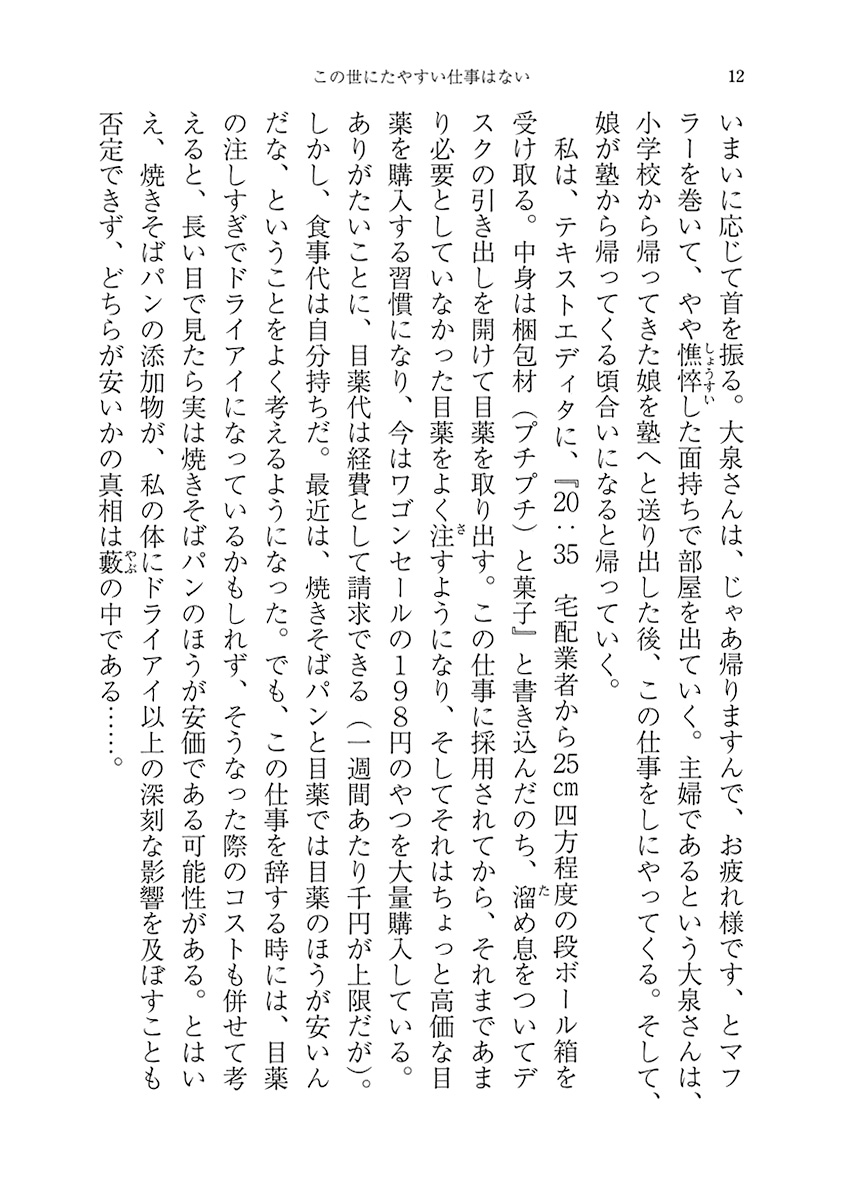 この世にたやすい仕事はない
12
いまいに応じて首を振る。大泉さんは、じゃあ帰りますんで、お疲れ様です、とマフ
ラーを巻いて、やや憔悴した面持ちで部屋を出ていく。主婦であるという大泉さんは、
しょうすい
小学校から帰ってきた娘を塾へと送り出した後、この仕事をしにやってくる。そして、
娘が塾から帰ってくる頃合いになると帰っていく。
私は、テキストエディタに、『20：35　宅配業者から25cm四方程度の段ボール箱を
受け取る。中身は梱包材（プチプチ）と菓子』と書き込んだのち、溜め息をついてデ
た
スクの引き出しを開けて目薬を取り出す。この仕事に採用されてから、それまであま
り必要としていなかった目薬をよく注すようになり、そしてそれはちょっと高価な目
さ
薬を購入する習慣になり、今はワゴンセールの198円のやつを大量購入している。
ありがたいことに、目薬代は経費として請求できる（一週間あたり千円が上限だが）。
しかし、食事代は自分持ちだ。最近は、焼きそばパンと目薬では目薬のほうが安いん
だな、ということをよく考えるようになった。でも、この仕事を辞する時には、目薬
の注しすぎでドライアイになっているかもしれず、そうなった際のコストも併せて考
えると、長い目で見たら実は焼きそばパンのほうが安価である可能性がある。とはい
え、焼きそばパンの添加物が、私の体にドライアイ以上の深刻な影響を及ぼすことも
否定できず、どちらが安いかの真相は藪の中である……。
やぶ